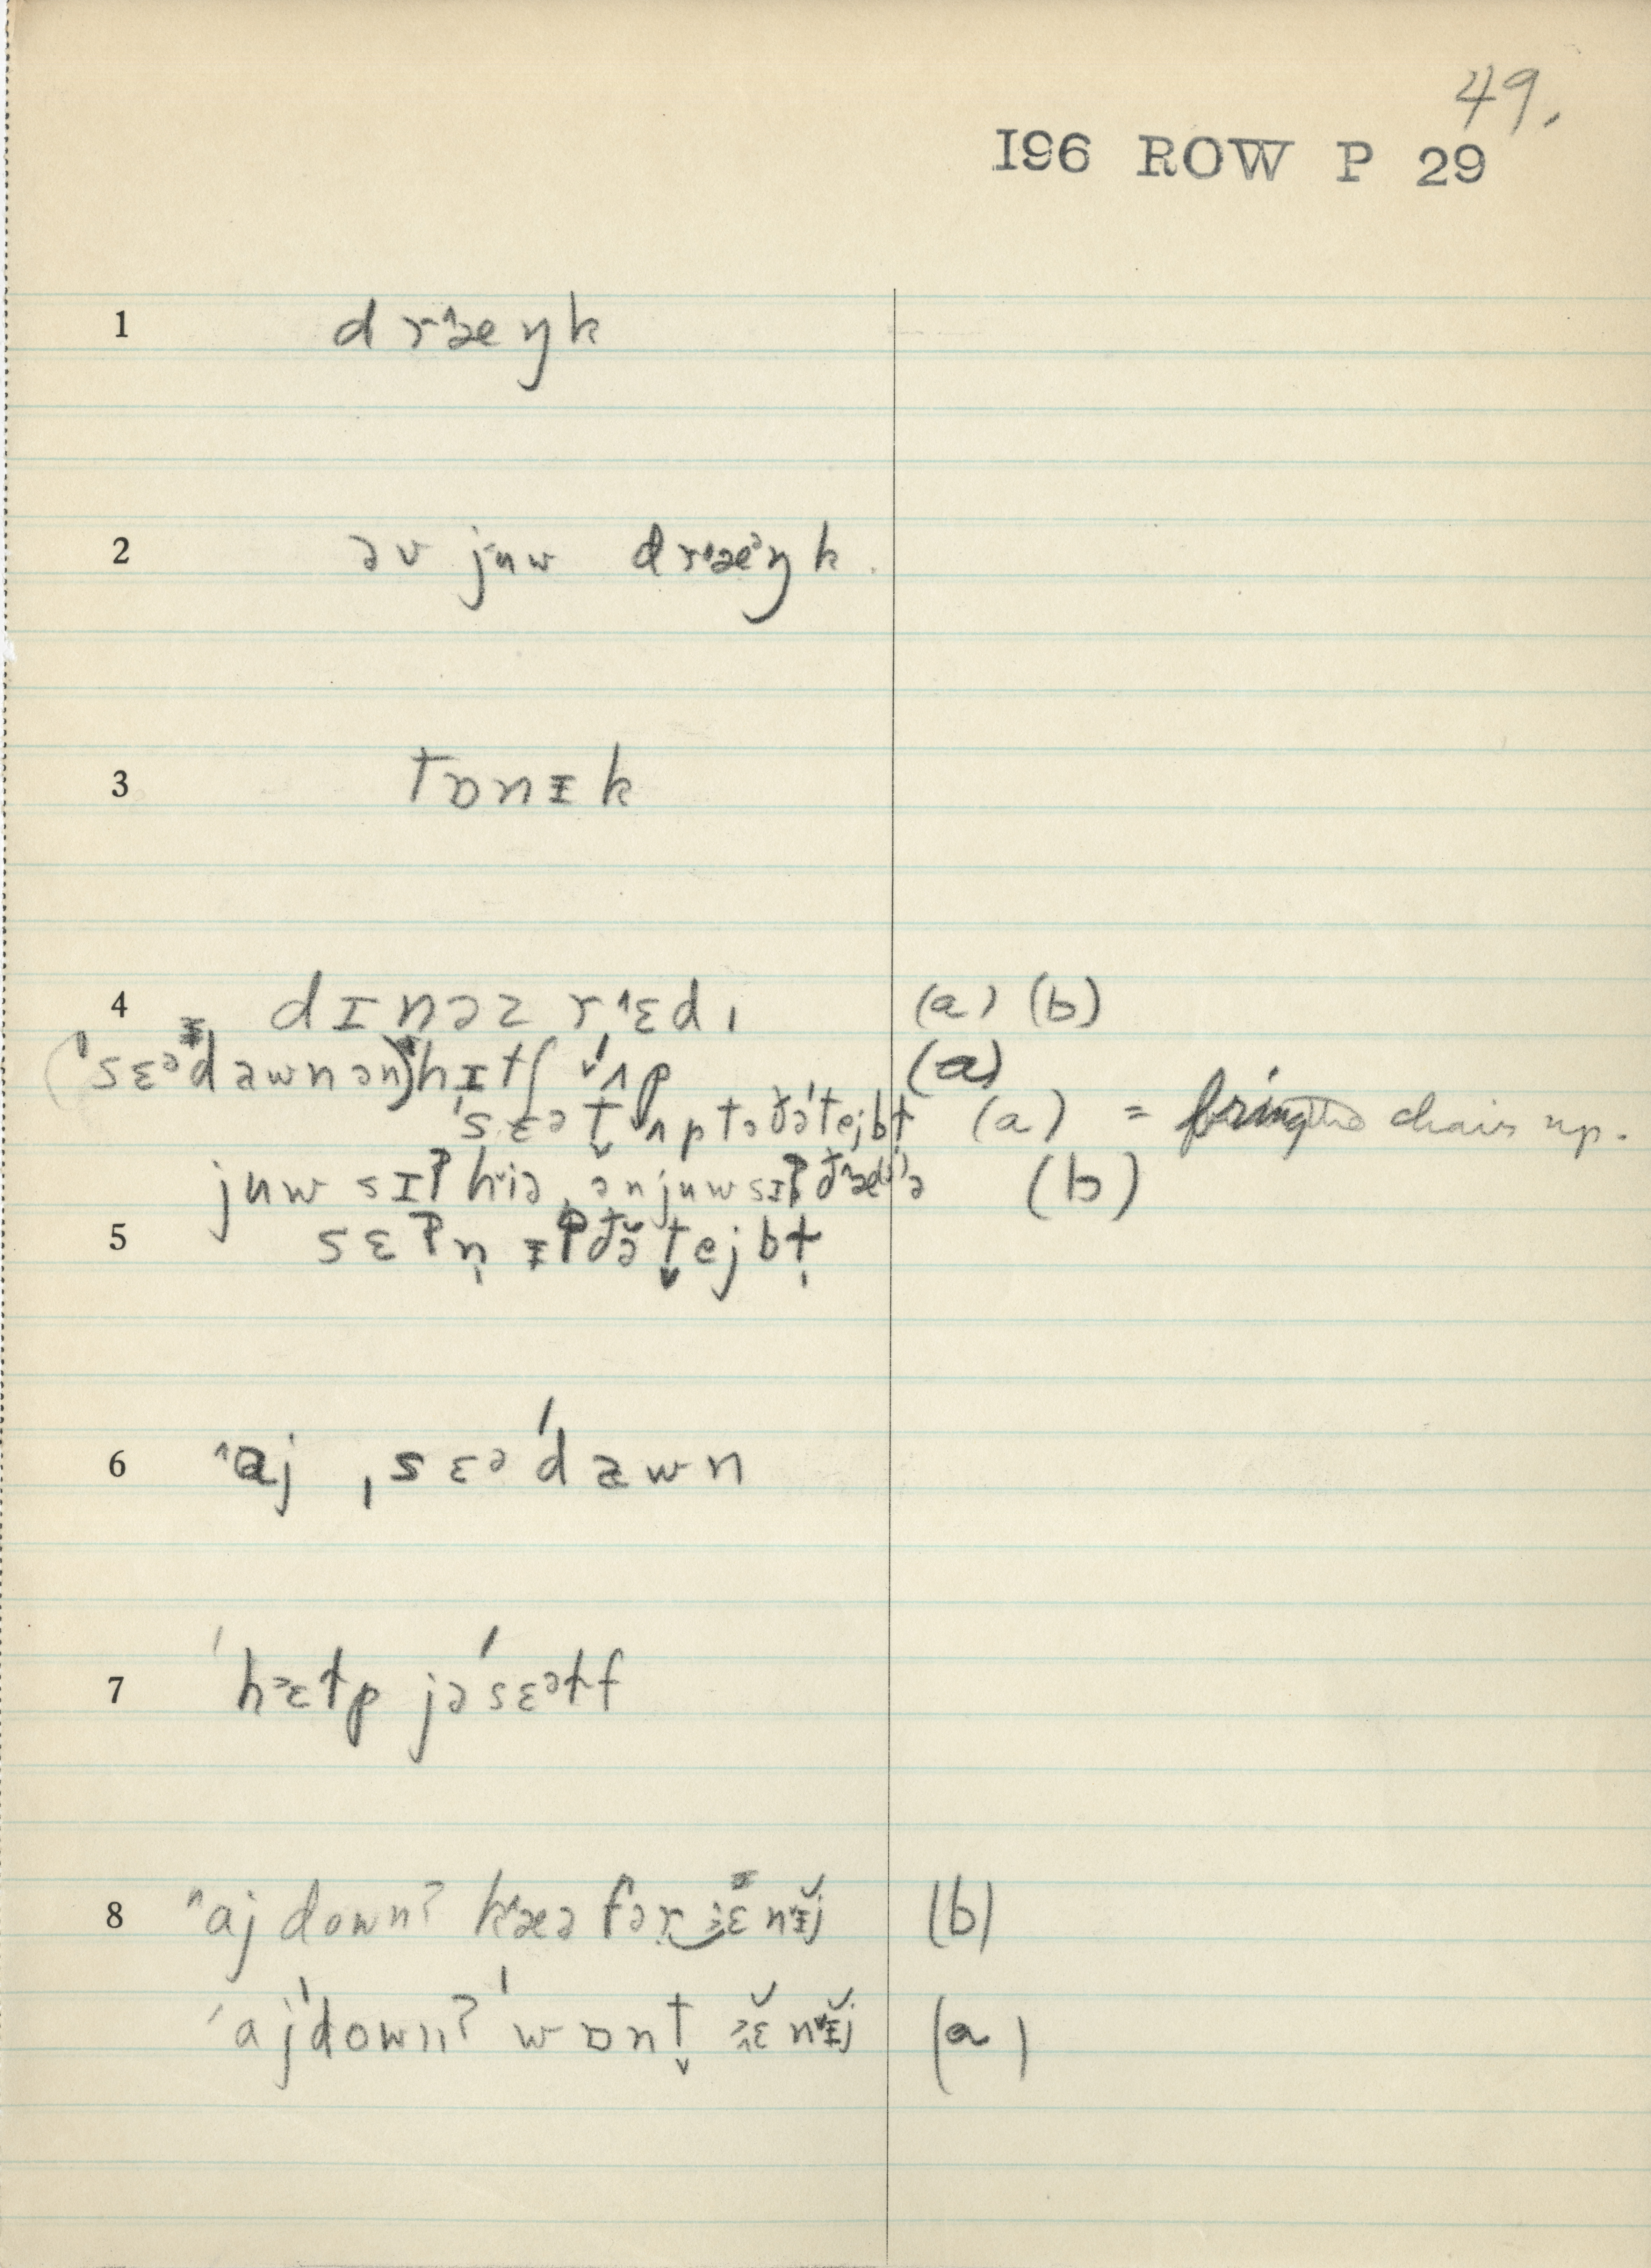 49.
I96 ROW P 29
1 drˆæŋk
2 əv jʉw drˈæᵊŋk
3 tɒnɪk
4 dɪnəz rˆɛdɪ (a) (b)
(ˈsɛəˈdawnən)hɪtʃ ˈʌp (a)
ˈsɛət ʌp tə ðəˈtejbɫ (a) = bring the chair up.
jʉw sɪʔ hiə, ənjʉwsɪʔ ðˆæə (b)
5 sɛʔn̩ ɪʔðə̆ tejbɫ̩
6 ˆaj ˌsɛəˈdawn
7 ˈhɛɫp jəˈsɛəɫf
8 ˆaj down? kˈæə fər ɛ̆nɪ̆j (b)
ˈajˈdown? ˈwɒnt ɛ̆nɪ̆j (a)